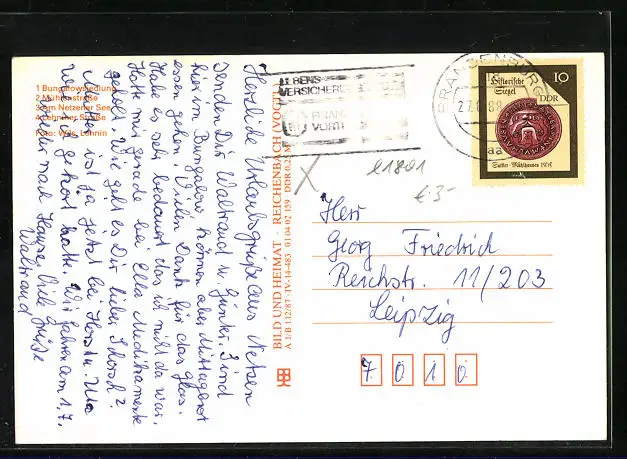 1 Bungalowsiedlung
2 Mühlenstraße
3 am Netzener See
4 Lehniner Straße
Foto: Lehnin
Herzliche Urlaubsgrüße aus Netzen
senden Dir Waltraud u. Günter. Sind
hier im Bungalow können aber Mittagessen
essen gehen. Vielen Dank für das Glas.
Habe es sehr bedauert das ich nicht da war.
Hatte mir gerade bei Ella Medikamente
geholt. Wie geht es Dir lieber Schorsch?
ist ja jetzt bei Horst u. Uta
gehört hatte. Wir fahren am 1.7.
wieder nach Hause Viele Grüße
Waltraud
BILD UND HEIMAT · REICHENBACH (VOGTL)
A 1/B 112/87 · IV-14-483 01 04 02 159 DDR 0,25 M
LEBENS
VERSICHERUNG
VORT
BRANDENBURG
27.6.88
aa
Historische
Siegel
10
DDR
Sattler · Mühlhausen 1905
e1801
€ 3-
Herr
Georg Friedrich
Reichstr. 11/203
Leipzig
7 0 1 0